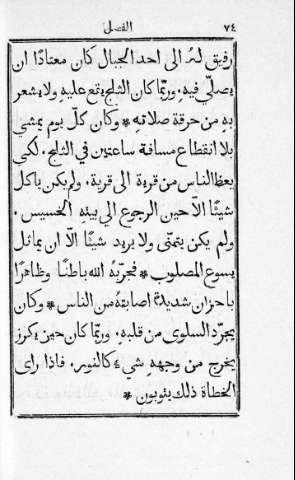 ٧٤ الفصل
رفيق له الى احد الجبال كان معتادًا ان
يصلّي فيهِ. وربّما كان الثلج يقع عليهِ ولا يشعر
بهِ من حرقة صلاته * وكان كلّ يوم يمشي
بلا انقطاع مسافة ساعتين في الثلج. لكي
يعظ الناس من قرية الى قرية. ولم يكن ياكل
شيئًا الّا حين الرجوع الى بيتهِ الخسيس.
ولم يكن يتمنّى ولا يريد شيئًا الّا ان يماثل
يسوع المصلوب * فجرّبهُ الله باطنًا وظاهرًا
باحزان شديدة اصابته من الناس * وكان
يجرّد السلوى من قلبهِ. وربّما كان حين يكرز
يخرج من وجههِ شيء كالنور. فاذا راى
الخطاة ذلك يتوبون *